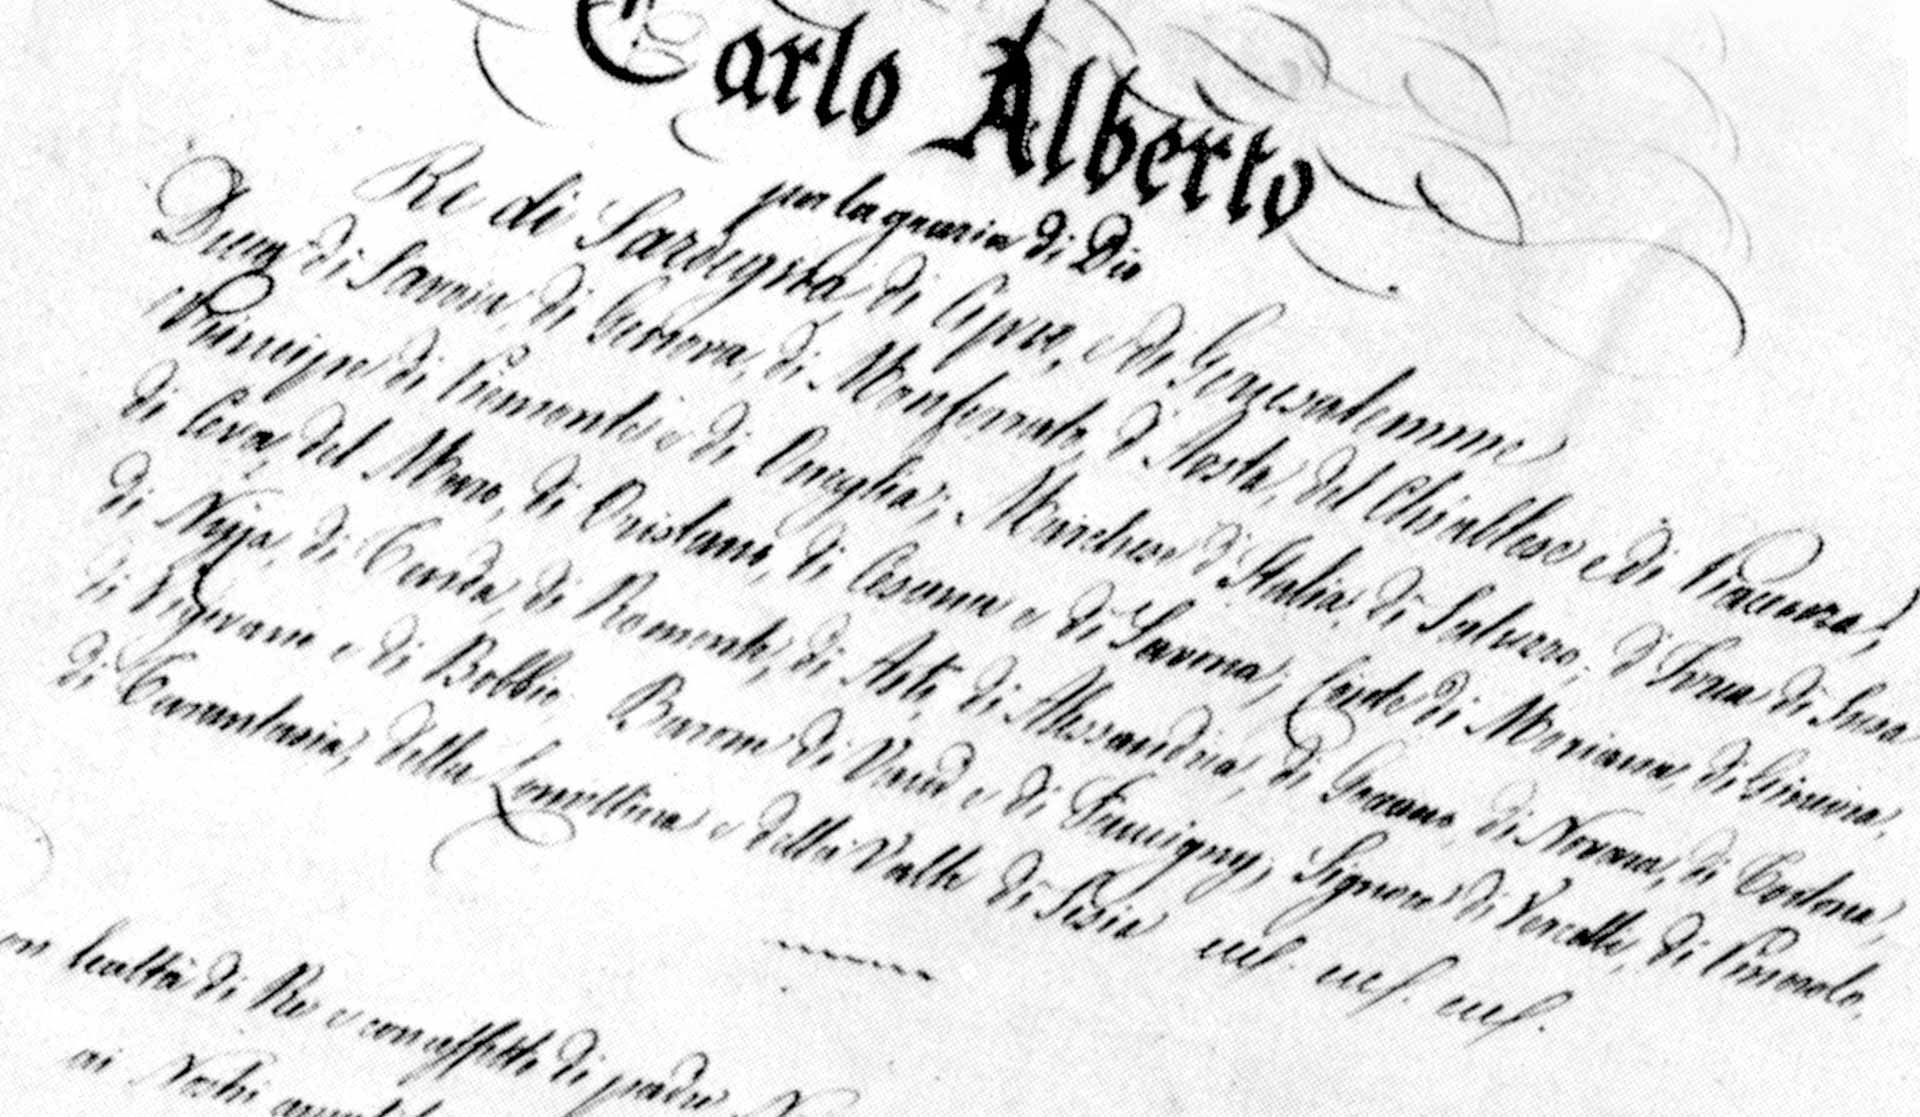 Carlo Alberto
per la grazia di Dio
Re di Sardegna, di Cipro, e di Gerusalemme
Duca di Savoia, di Genova, di Monferrato, d'Aosta, del Chiablese e di Piacenza;
Principe di Piemonte e di Oneglia; Marchese d'Italia, di Saluzzo, d'Ivrea di Susa
di Ceva, del Maro, di Oristano, di Cesana e di Savona; Conte di Moriana, di Ginevra,
di Nizza, di Tenda, di Romonte, di Asti, di Alessandria, di Goceano, di Novara, di Tortona,
di Vigevano e di Bobbio; Barone di Vaud e di Faucigny; Signore di Vercelli, di Pinerolo,
di Tarantasia, della Lomellina e della Valle di Sesia ecc. ecc. ecc.
on lealtà di Re e con affetto di padre
ai Nostri